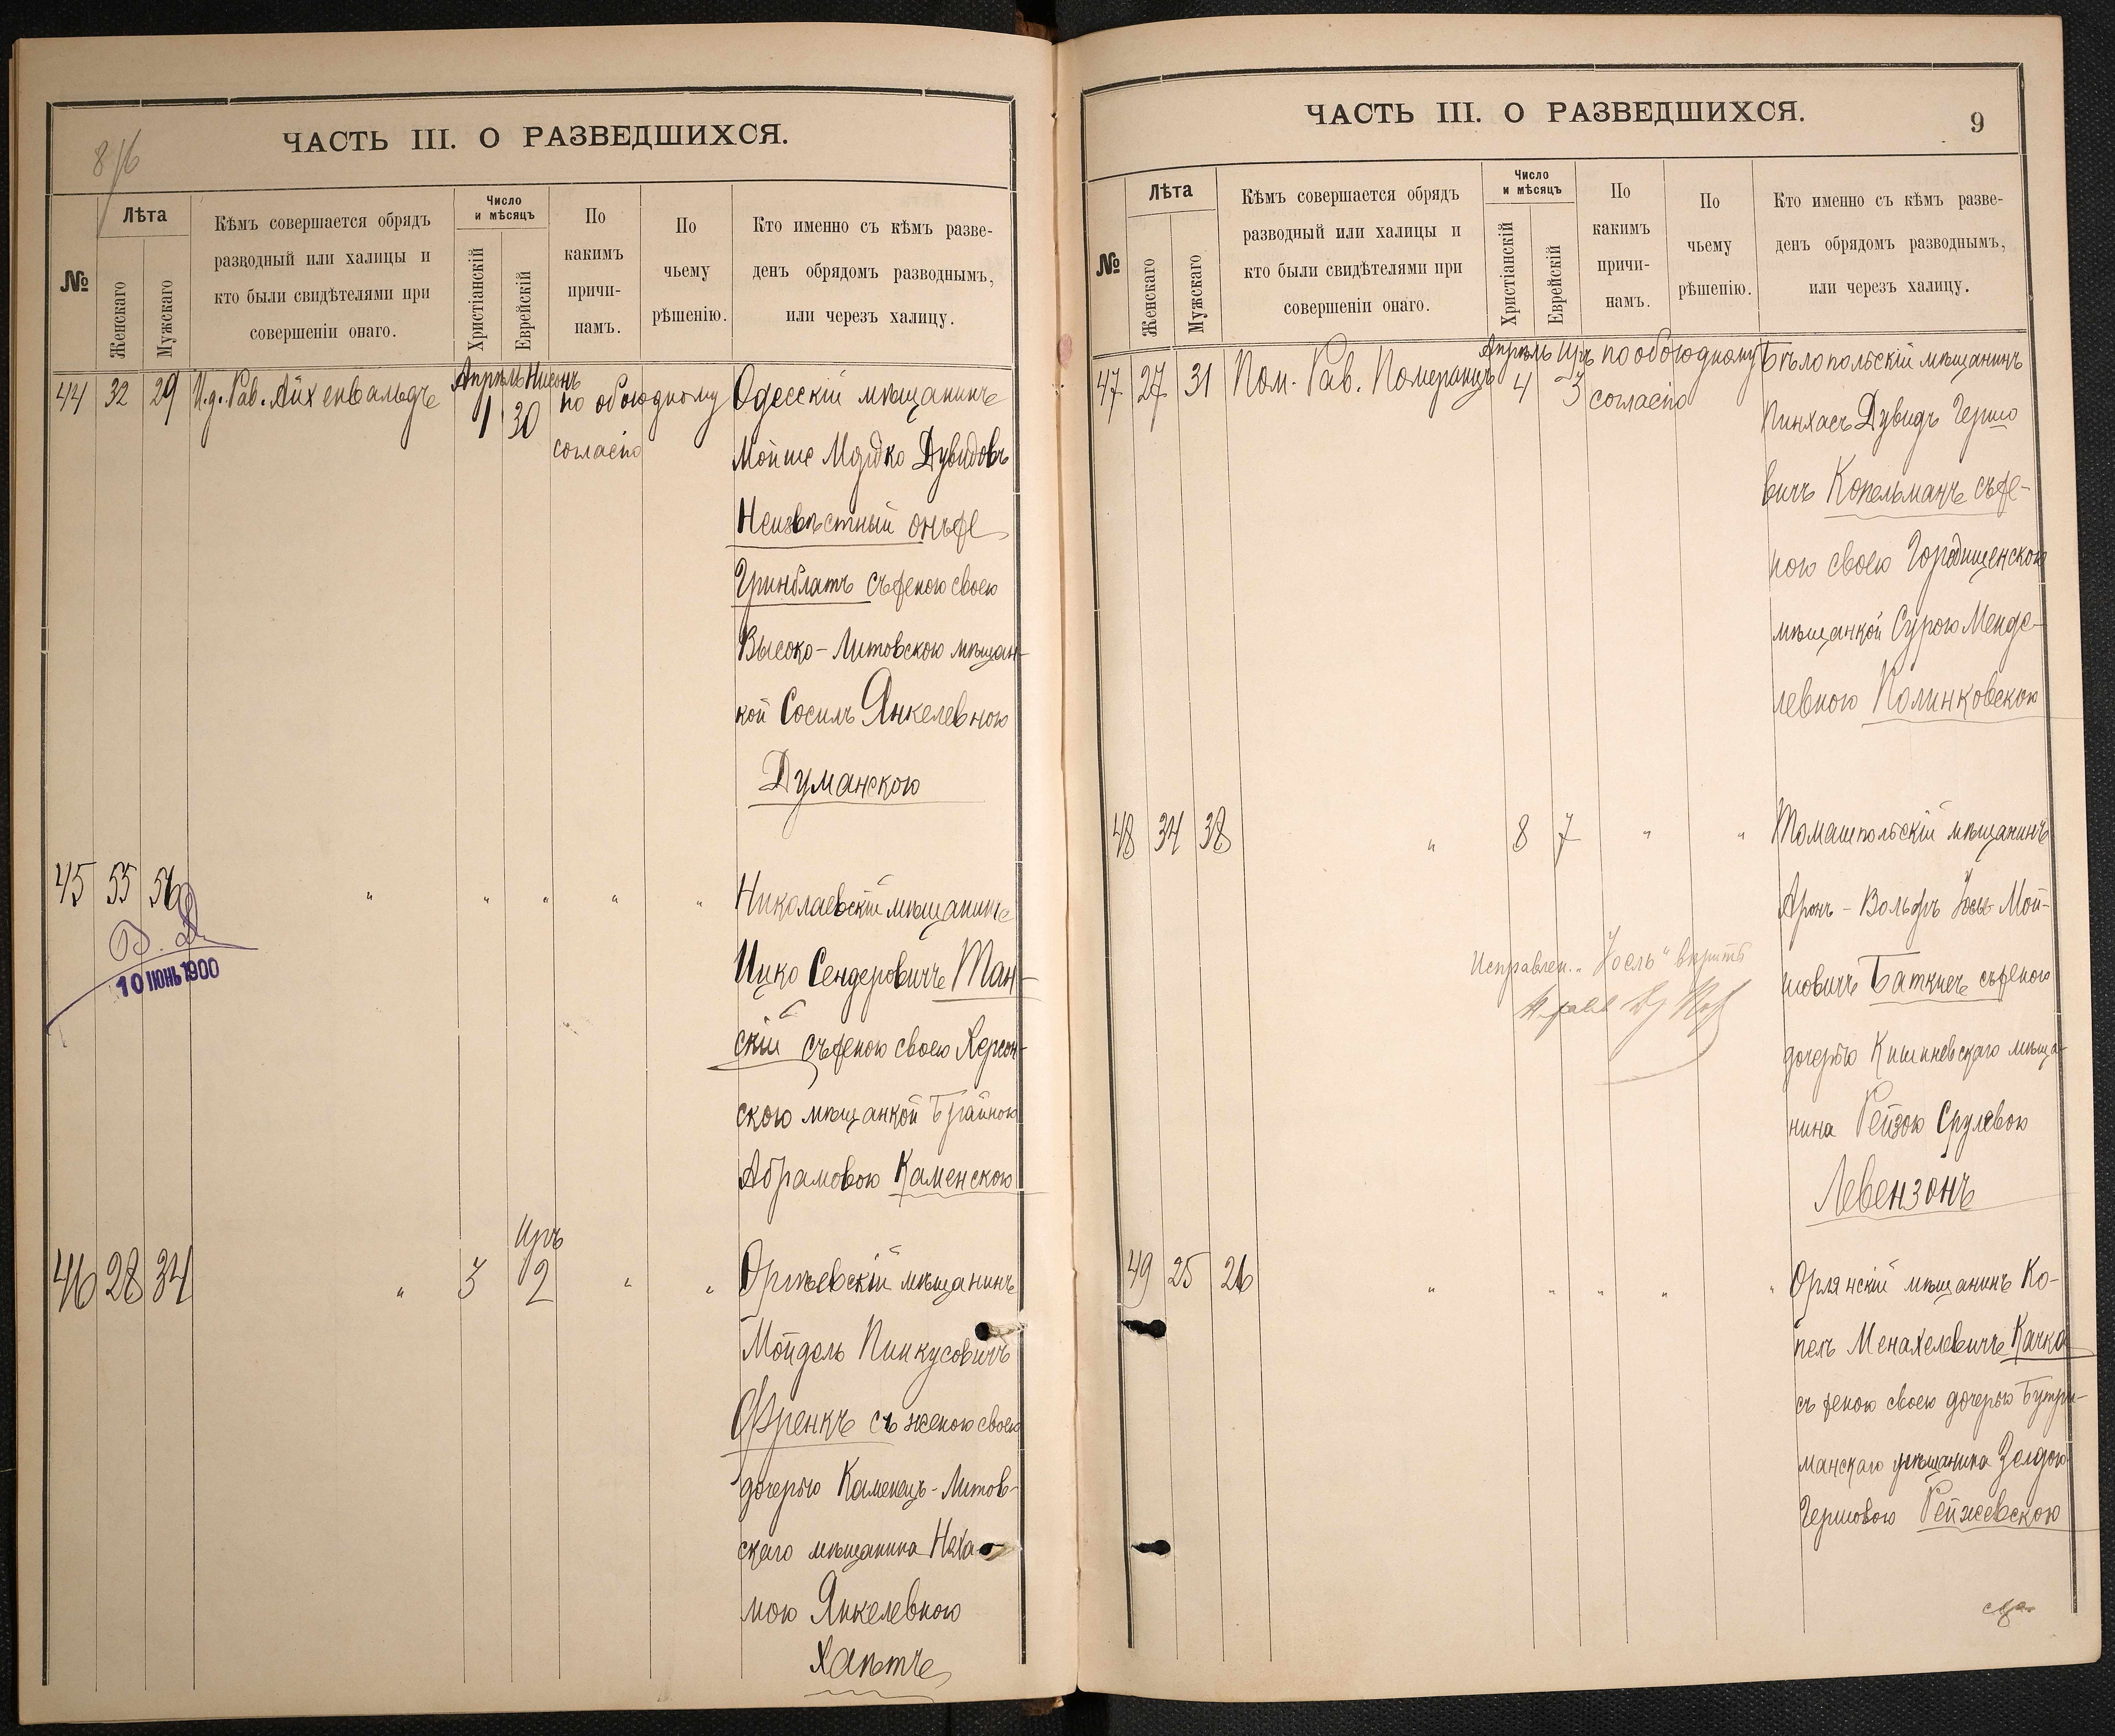 8/16
ЧАСТЬ III. О РАЗВЕДШИХСЯ.
№
Лѣта
Женскаго
Мужскаго
Кѣмъ совершается обрядъ
разводный или халицы и
кто были свидѣтелями при
совершеніи онаго.
Число
и мѣсяцъ
Христіанскій
Еврейскій
По
какимъ
причи-
намъ.
По
чьему
рѣшенію.
Кто именно съ кѣмъ разве-
денъ обрядомъ разводнымъ,
или черезъ халицу.
44 32 29 И.д. Рав. Айхенвальдъ
Апрѣль Нисонъ
1 30
по обоюдному
согласію
Одесскій мѣщанинъ
Мойше Мордко Дувидовъ
Неизвѣстный онъ же
Гринблатъ съ женою своею
Высоко-Литовскою мѣщан-
кой Сосилъ Янкелевною
Думанскою
45 55 56 " " " " "
Николаевскій мѣщанинъ
Ицко Сендеровичъ Ман-
скій съ женою своею Херсон-
скою мѣщанкой Брайною
Абрамовою Каменскою
10 ІЮНЬ 1900
Иръ
46 28 34 " 3 2 " "
Оргѣевскій мѣщанинъ
Мойдель Пинкусовичъ
Френкъ съ женою своею
дочерью Каменецъ-Литов-
скаго мѣщанина Неха-
мою Янкелевною
Хапъ
ЧАСТЬ III. О РАЗВЕДШИХСЯ.
9
№
Лѣта
Женскаго
Мужскаго
Кѣмъ совершается обрядъ
разводный или халицы и
кто были свидѣтелями при
совершеніи онаго.
Число
и мѣсяцъ
Христіанскій
Еврейскій
По
какимъ
причи-
намъ.
По
чьему
рѣшенію.
Кто именно съ кѣмъ разве-
денъ обрядомъ разводнымъ,
или черезъ халицу.
47 27 31 Пом. Рав. Померанцъ
Апрѣль Иръ
4 3
по обоюдному
согласію
Бѣлопольскій мѣщанинъ
Пинхасъ Дувидъ Гершо
вичъ Копельманъ съ же-
ною своею Городищенскою
мѣщанкой Сурою Менде-
левною Полинковскою
48 34 38 " 8 7 " "
Томашпольскій мѣщанинъ
Аронъ-Вольфъ Іосъ Мой-
шовичъ Баткисъ съ женою
дочерью Кишиневскаго мѣща-
нина Рейзою Срулевою
Левензонъ
Исправлен. „Іосль" вѣрить
49 25 26 " " " " "
Орлянскій мѣщанинъ Ко-
пелъ Менахелевичъ Качка
съ женою своею дочерью Бутри-
манскаго мѣщанина Зелдою
Гершовою Рейжевскою